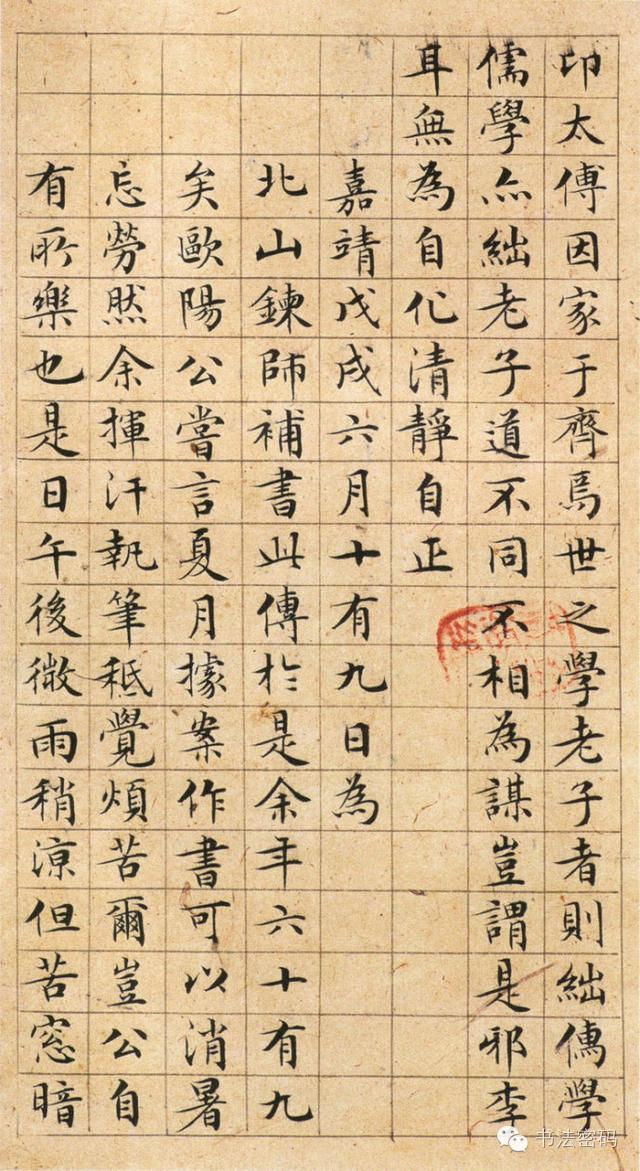 卬太傅因家于齊焉世之學老子者則絀儒學
儒學亦絀老子道不同不相為謀豈謂是邪李
耳無為自化清靜自正
嘉靖戊戌六月十有九日為
北山鍊師補書此傳於是余年六十有九
矣歐陽公嘗言夏月據案作書可以消暑
忘勞然余揮汗執筆秪覺煩苦爾豈公自
有所樂也是日午後微雨稍涼但苦窓暗
书法密码